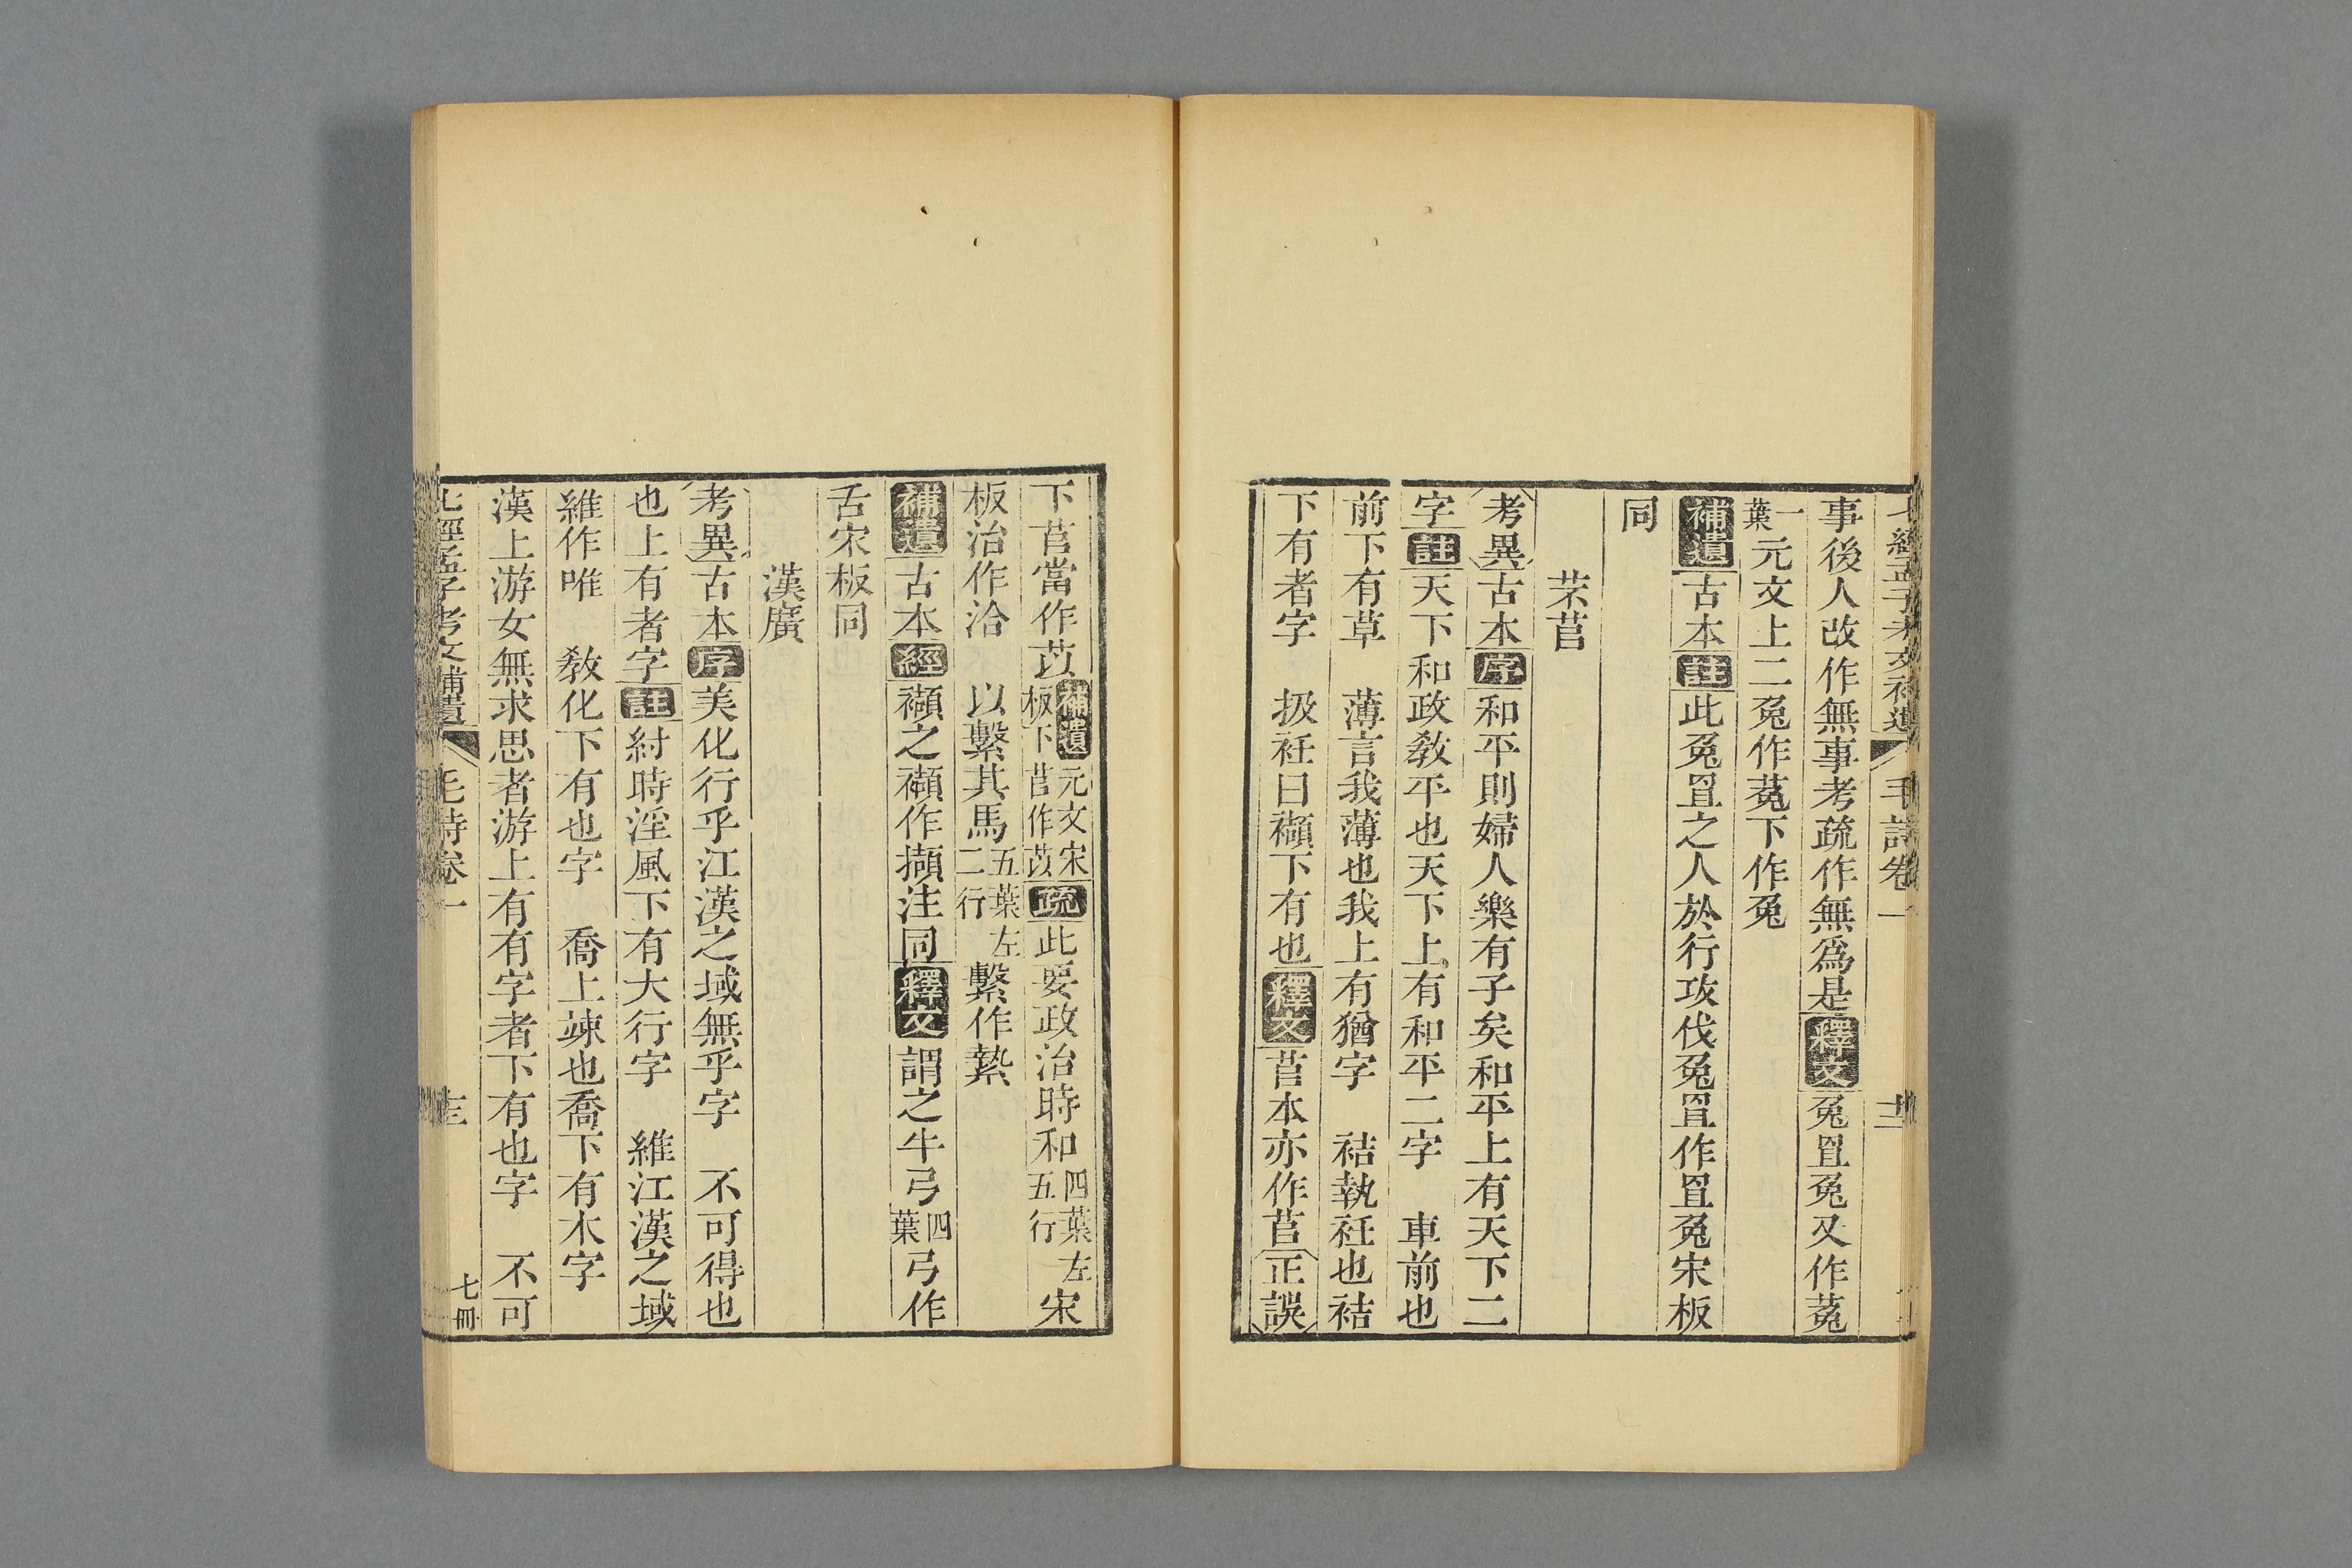 七經孟子考文補遺 毛詩卷一
事後人改作無事考疏作無爲是釋文兔罝兔又作菟
一葉元文上二兔作菟下作兔
補遺古本註此兔罝之人於行攻伐兔罝作罝兔宋板
同
芣苢
考異古本序和平則婦人樂有子矣和平上有天下二
字註天下和政敎平也天下上有和平二字 車前也
前下有草 薄言我薄也我上有猶字 袺執衽也袺
下有者字 扱衽曰襭下有也釋文苢本亦作苢正誤
下苢當作苡補遺元文宋板下苢作苡疏此要政治時和四葉左五行宋
板治作洽 以繫其馬五葉左二行繫作縶
補遺古本經襭之襭作擷注同釋文謂之牛弓四葉弓作
舌宋板同
漢廣
考異古本序美化行乎江漢之域無乎字 不可得也
也上有者字註紂時淫風下有大行字 維江漢之域
維作唯 敎化下有也字 喬上竦也喬下有木字
漢上游女無求思者游上有有字者下有也字 不可
七經孟子考文補遺 毛詩卷一 七冊